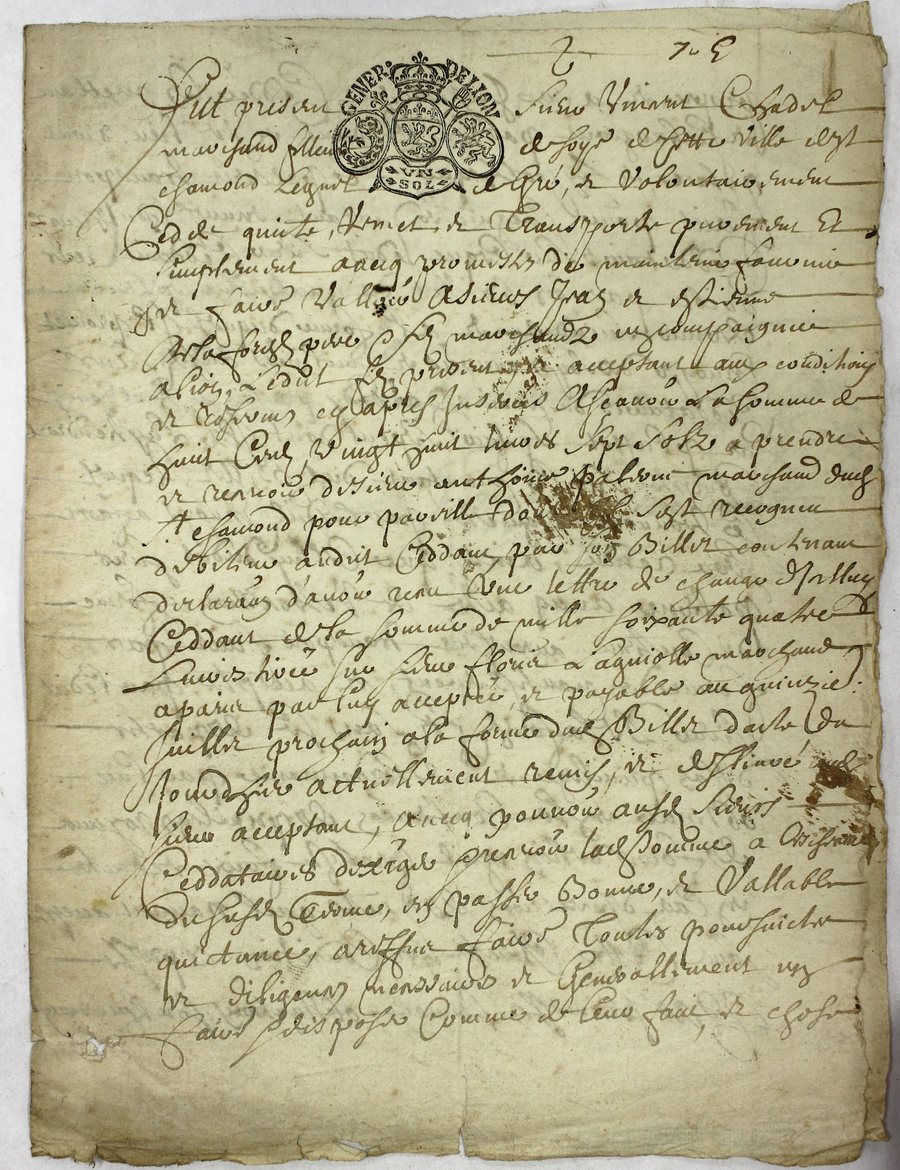 7 e
GENER. DE LION
VN SOL
Fut present Sieur Vincent Chadel
marchand filleur de soye de Cette Ville de St
chamond Lequel de Gré, et Volontairement
Cedde quitte, Remet, et Transporte purement Et
Simplement avecq promesses de maintenir
et faire Valloir A sieurs Jean et estienne
pere & filz marchandz en compaignie
a Lion, Ledit filz present et acceptant aux conditions
et reserves cy apres Inserées Ascavoir La somme de
huit Cent Vingt huit livres Sept Solz a prendre
et recevoir de sieur anthoine palerne marchand dud
St chamond pour pareille dont il Sest recogneu
debiteur audit Ceddant par son Billet contenant
declaraon d'avoir receu Une lettre de change d'Icelluy
Ceddant de la somme de mille soixante quatre
Livres tirée sur sieur fleury marchand
a paris par luy acceptée, et payable au quinzie:
Juillet prochain a la forme dud Billet datté du
Jourdhier actuellement remis, et
sieur acceptant, avecq pouvoir ausd Sieurs
Ceddataires d'exiger recevoir lad somme a
dud Terme, en passer Bonne, et Vallable
quictance, faire Toutes poursuictes
et diligences necessaires et Generallement en
faire & disposer Comme de leur fait, et chose